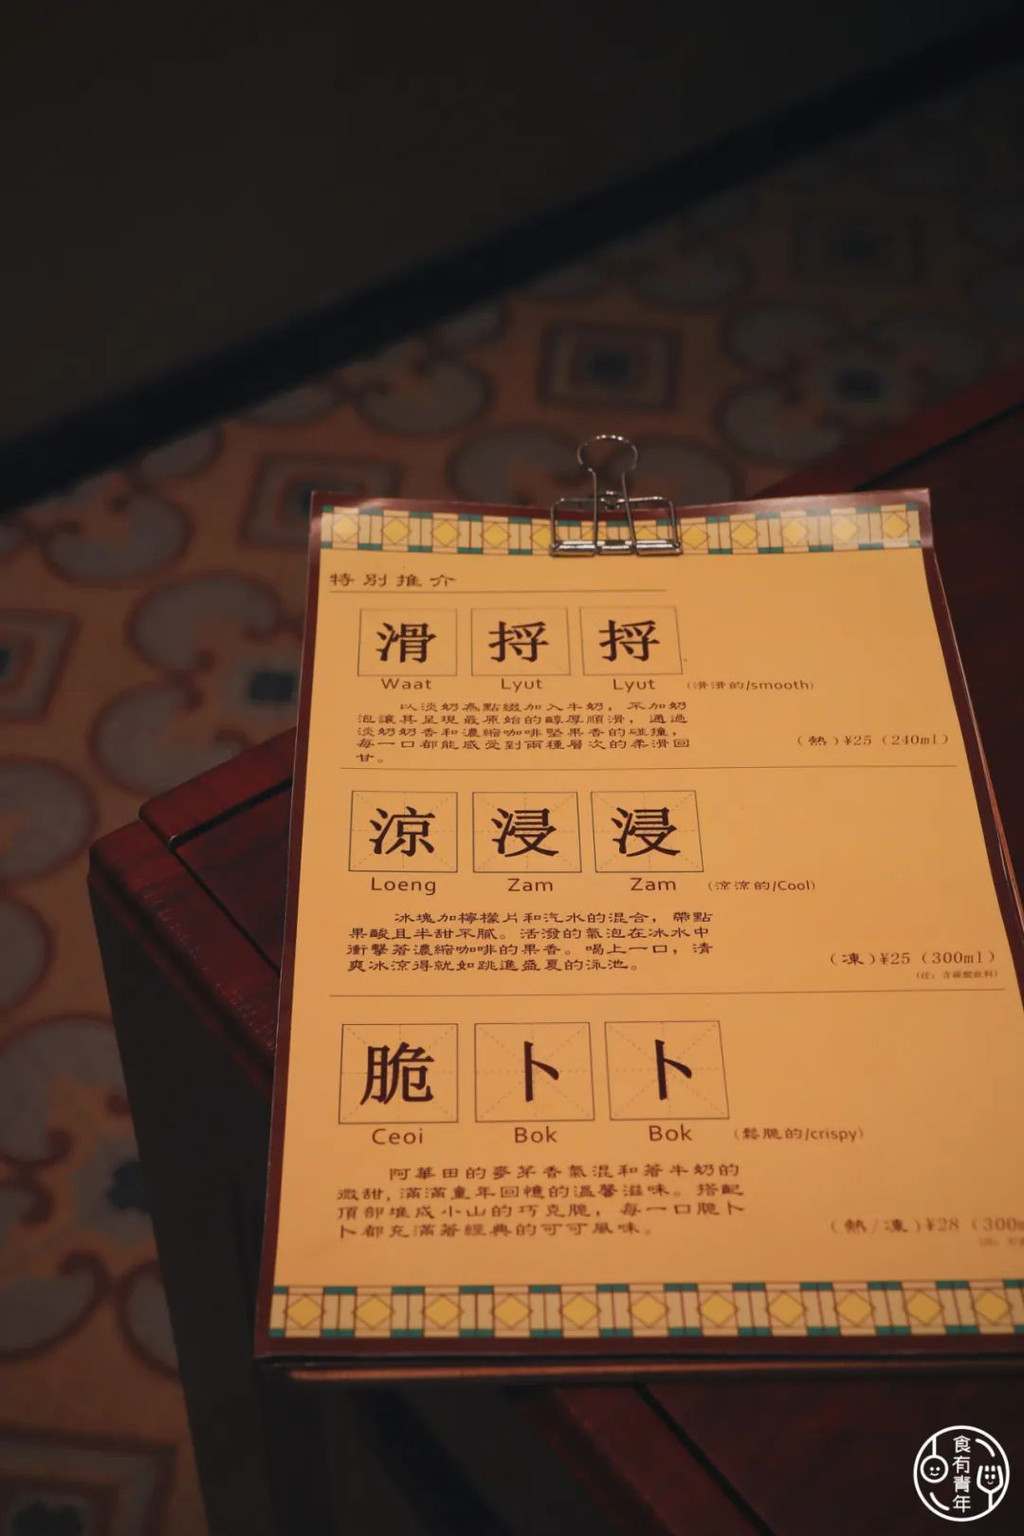 特別推介
滑 捋 捋
Waat Lyut Lyut (滑滑的/smooth)
以淡奶為點綴加入牛奶，不加奶
泡讓其呈現最原始的醇厚順滑，通過
淡奶奶香和濃縮咖啡堅果香的碰撞，
每一口都能感受到兩種層次的柔滑回
甘。
(熱)¥25 (240ml)
涼 浸 浸
Loeng Zam Zam (涼涼的/Cool)
冰塊加檸檬片和汽水的混合，帶點
果酸且半甜不膩。活潑的氣泡在冰水中
衝擊著濃縮咖啡的果香。喝上一口，清
爽冰涼得就如跳進盛夏的泳池。
(凍)¥25 (300ml)
(注：含碳酸飲料)
脆 卜 卜
Ceoi Bok Bok (鬆脆的/crispy)
阿華田的麥芽香氣混和著牛奶的
微甜，滿滿童年回憶的溫馨滋味。搭配
頂部堆成小山的巧克脆，每一口脆卜
卜都充滿著經典的可可風味。
(熱/凍)¥28 (300m
食有青年